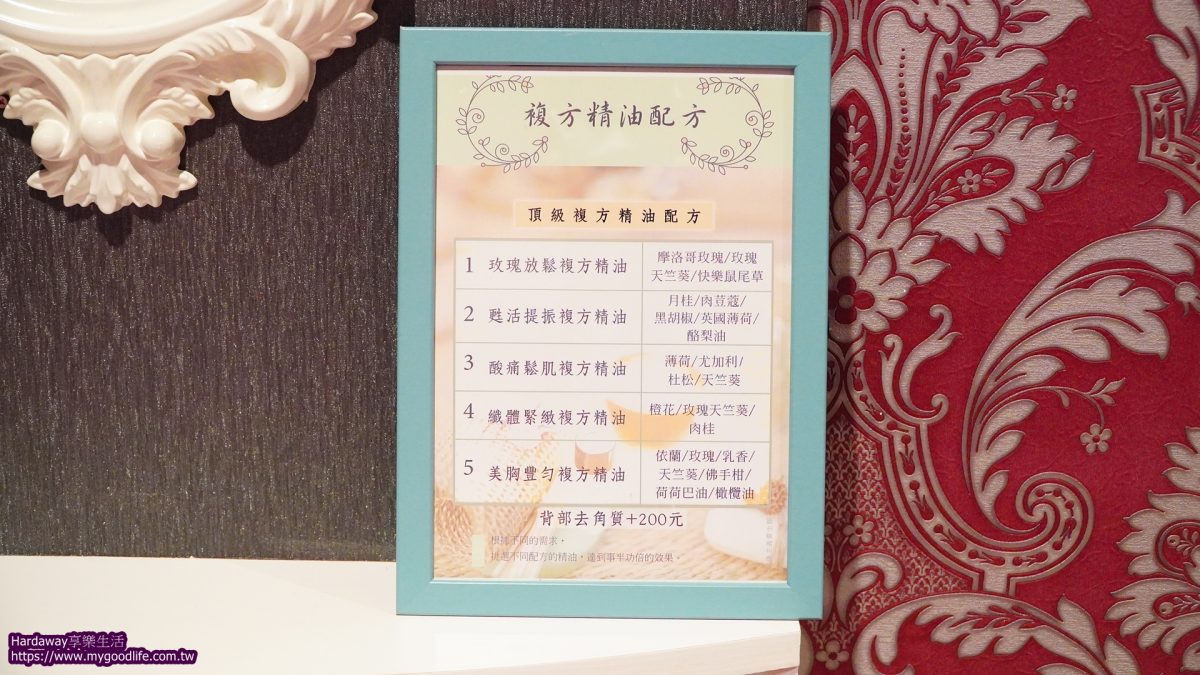 複方精油配方
頂級複方精油配方
1 玫瑰放鬆複方精油
摩洛哥玫瑰/玫瑰
天竺葵/快樂鼠尾草
2 甦活提振複方精油
月桂/肉荳蔻/
黑胡椒/英國薄荷/
酪梨油
3 酸痛鬆肌複方精油
薄荷/尤加利/
杜松/天竺葵
4 纖體緊緻複方精油
橙花/玫瑰天竺葵/
肉桂
5 美胸豐勻複方精油
依蘭/玫瑰/乳香/
天竺葵/佛手柑/
荷荷巴油/橄欖油
背部去角質+200元
根據不同的需求，
挑選不同配方的精油，達到事半功倍的效果。
Hardaway享樂生活
https://www.mygoodlife.com.tw